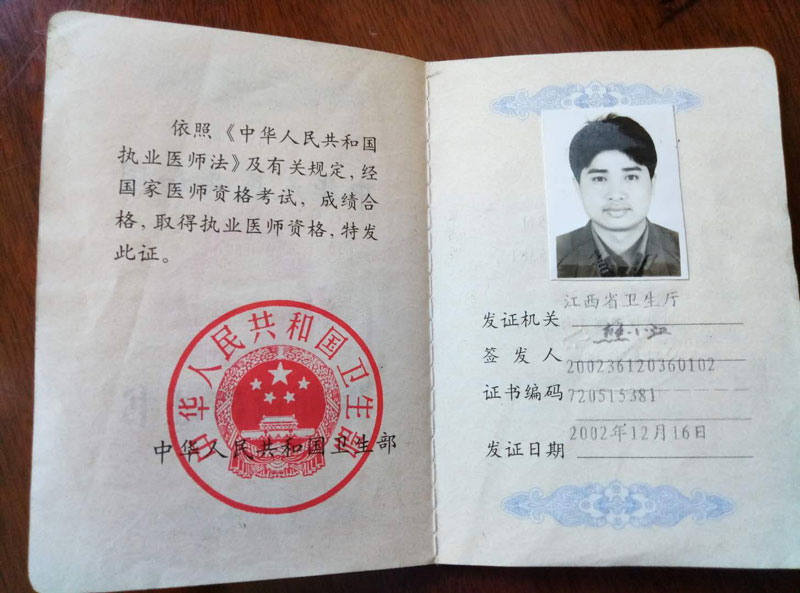 依照《中华人民共和国
执业医师法》及有关规定，经
国家医师资格考试，成绩合
格，取得执业医师资格，特发
此证。
中华人民共和国卫生部
中华人民共和国卫生部
江西省卫生厅
发证机关
签 发 人
200236120360102
证书编码
720515381
2002年12月16日
发证日期